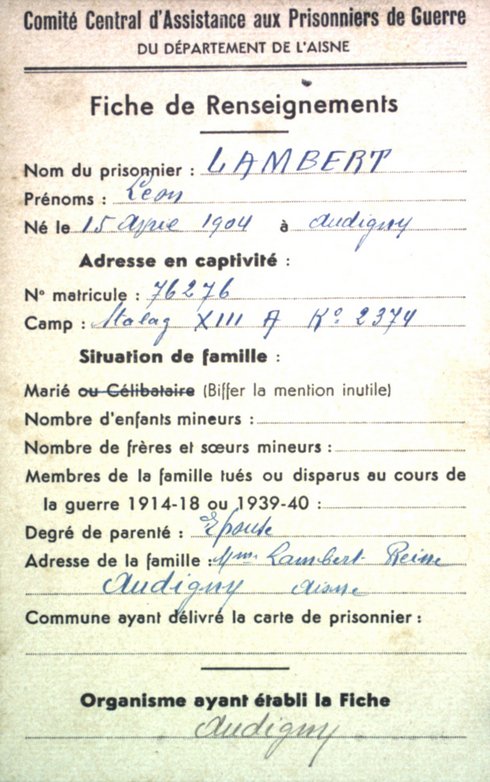 Comité Central d'Assistance aux Prisonniers de Guerre
DU DÉPARTEMENT DE L'AISNE
Fiche de Renseignements
Nom du prisonnier : LAMBERT
Prénoms : Léon
Né le 15 Avril 1904 à Audigny
Adresse en captivité :
N° matricule : 76276
Camp : Stalag XIII A Ko 2374
Situation de famille :
Marié ou Célibataire (Biffer la mention inutile)
Nombre d'enfants mineurs :
Nombre de frères et sœurs mineurs :
Membres de la famille tués ou disparus au cours de
la guerre 1914-18 ou 1939-40 :
Degré de parenté : Epouse
Adresse de la famille : Mme Lambert Reine
Audigny Aisne
Commune ayant délivré la carte de prisonnier :
Organisme ayant établi la Fiche
Audigny